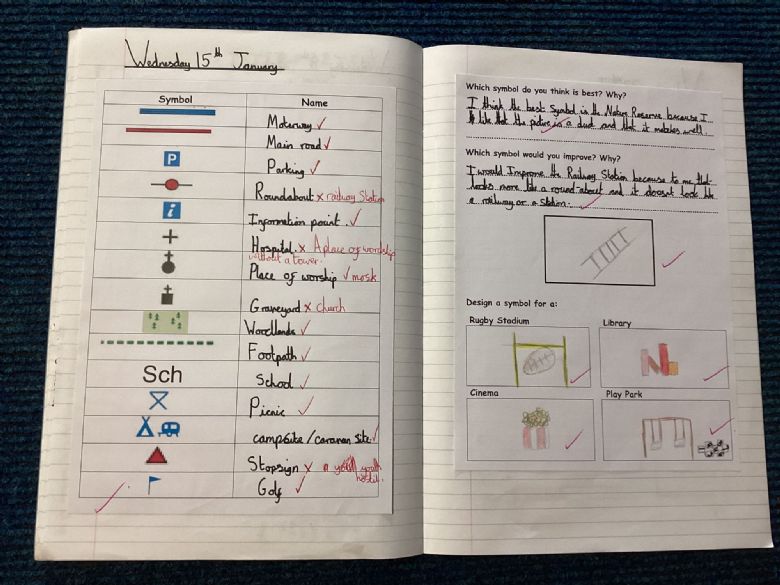 Wednesday 15th January
Symbol Name
Motorway ✓
Main road ✓
P Parking ✓
Roundabout x railway Station
i Information point. ✓
Hospital. x A place of worship
without a tower.
Place of worship ✓ mosk
Graveyard x church
Woodlands ✓
Footpath ✓
Sch School ✓
Picnic ✓
campsite/caravan site ✓
Stopsign x a youth
hostil.
Golf ✓
Which symbol do you think is best? Why?
I think the best Symbol is the Nature Reserve because I
like that the picture is a duck and that it matches well.
Which symbol would you improve? Why?
I would Improve the Railway Station because to me that
looks more like a round-about and it doesnt look like
a railway or a station.
Design a symbol for a:
Rugby Stadium Library
Cinema Play Park